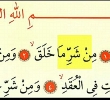 مِ اللَّهِ ال
مِن شَرِّ مَا خَلَقَ ۝ وَمِن
فِي الْعُقَدِ ۝ وَمِن شَرِّ